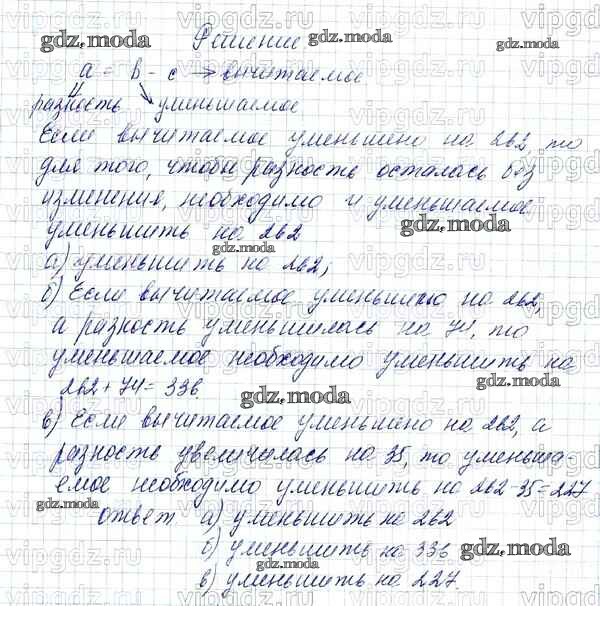 Решение
a = b - c → вычитаемое
разность уменьшаемое
Если вычитаемое уменьшено на 262, то
для того, чтобы разность осталась без
изменения, необходимо и уменьшаемое
уменьшить на 262
а) уменьшить на 262;
б) Если вычитаемое уменьшено на 262,
а разность уменьшилась на 74, то
уменьшаемое необходимо уменьшить на
262 + 74 = 336.
в) Если вычитаемое уменьшено на 262, а
разность увеличилась на 35, то уменьша-
емое необходимо уменьшить на 262-35=227
ответ а) уменьшить на 262
б) уменьшить на 336
в) уменьшить на 227.
gdz.moda
vipgdz.ru